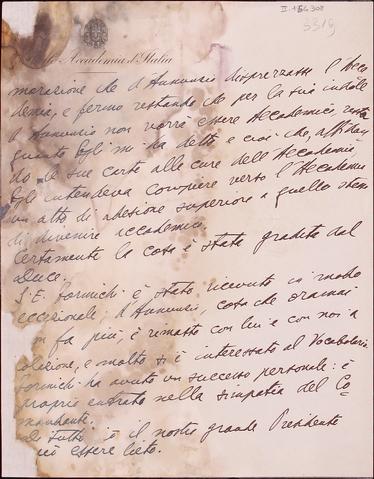 II. 308
3319
Reale Accademia d'Italia
morazione che d'Annunzio disprezzasse l'Acca
demia, e fermo restando che per la sua indole
d'Annunzio non vorrà essere Accademico, resta
quanto Egli mi ha detto e cioè che, affidan
do le sue carte alle cure dell'Accademia,
Egli intendeva compiere verso l'Accademia
un atto di adesione superiore a quello stesso
di divenire accademico.
Certamente la cosa è stata gradita dal
Duce.
S. E. Formichi è stato ricevuto in modo
eccezionale; d'Annunzio, cosa che oramai
non fa più, è rimasto con lui e con noi a
colazione, e molto si è interessato al Vocabolario.
Formichi ha avuto un successo personale: è
proprio entrato nella simpatia del Co
mandante.
Di tutto il nostro grande Presidente
può essere lieto.